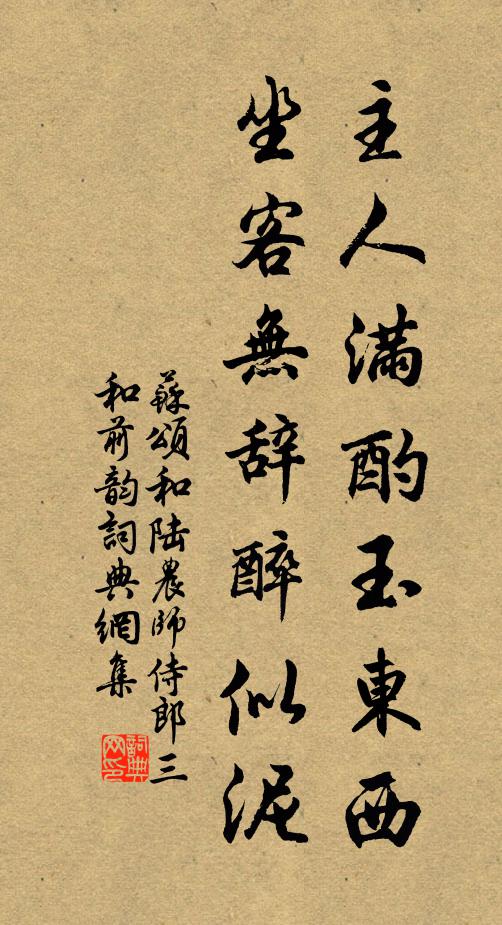 主人滿酌玉東西
坐客無辞醉似泥
蘇頌和陸農師侍郎三
和前韵詞典網集
詞典网印